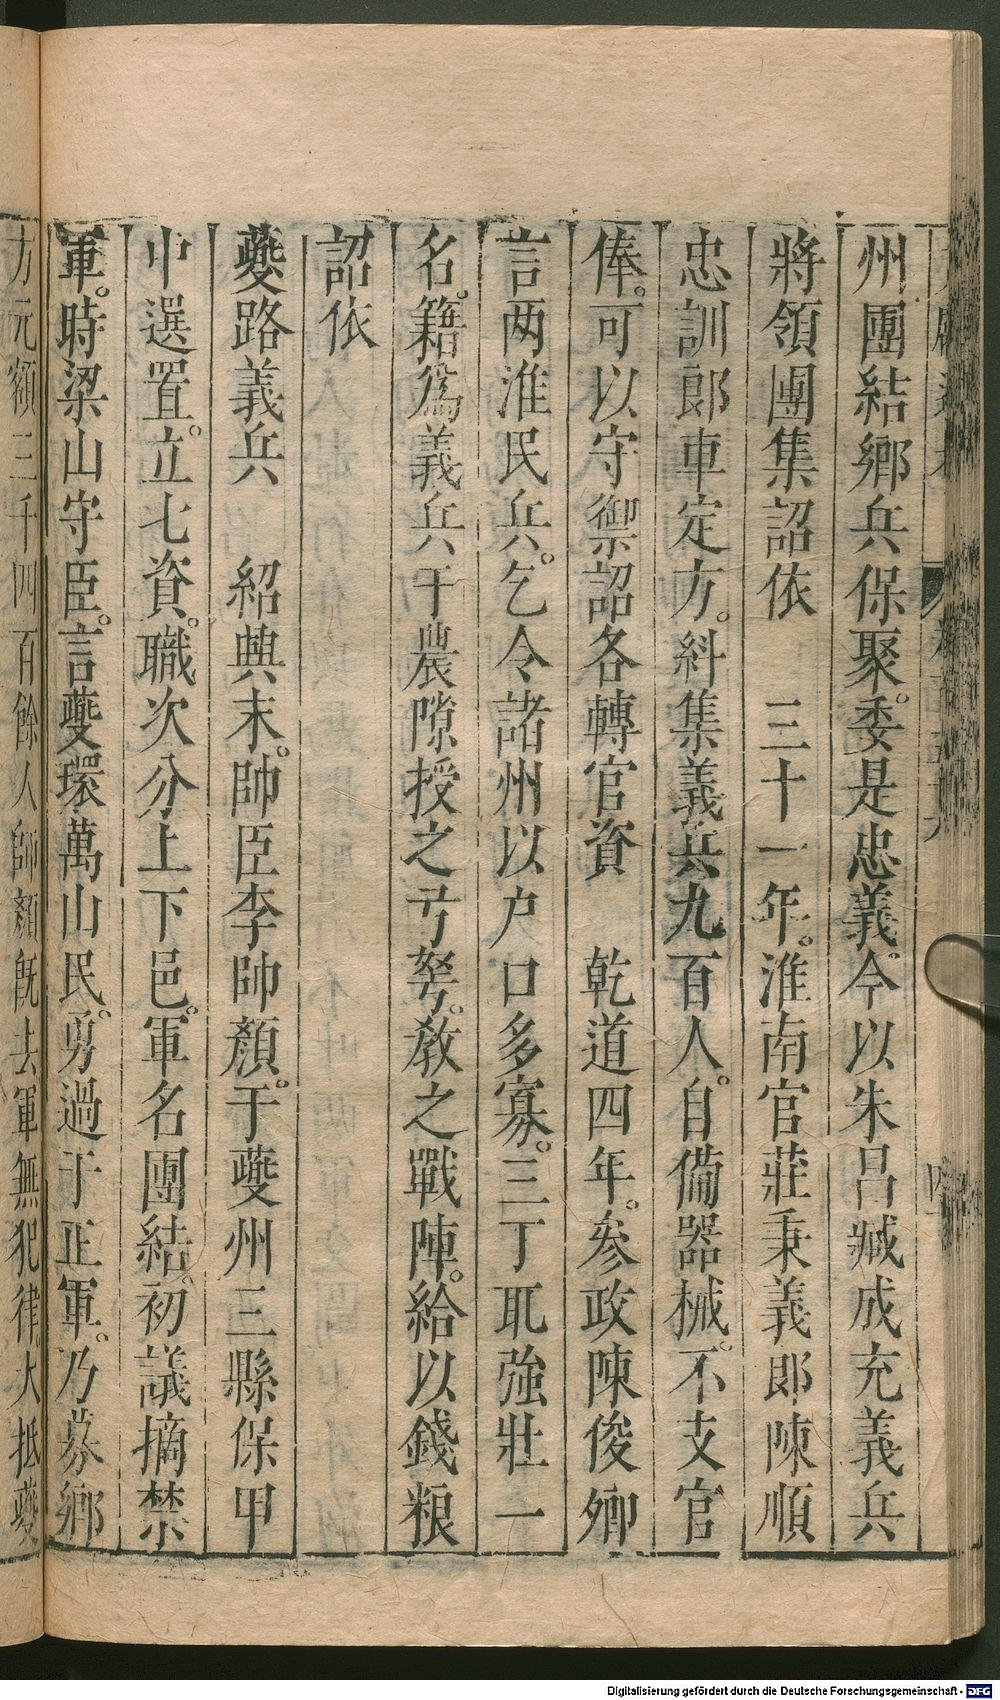 州團結鄉兵保聚。委是忠義。今以朱呂臧成充義兵
將領團集詔依　三十一年。淮南官莊秉義郎陳順
忠訓郎車定方。糾集義兵九百人。自備器械。不支官
俸。可以守禦詔各轉官資　乾道四年。參政陳俊卿
言两淮民兵。乞令諸州以户口多寡。三丁取強壯一
名。籍爲義兵于農隙授之弓弩。教之戰陣。給以錢粮
詔依
夔路義兵　紹興末。帥臣李師顏。于夔州三縣保甲
中選置。立七資。職次分上下邑。軍名團結。初議摘禁
軍。時梁山守臣。言夔環萬山民。勇過于正軍。乃募鄉
方元額三千四百餘人師顏旣去軍無犯律大抵夔
Digitalisierung gefördert durch die Deutsche Forschungsgemeinschaft - DFG